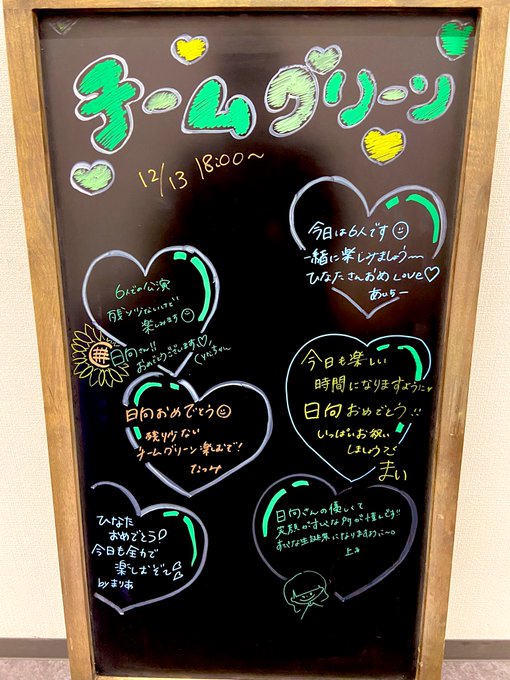 チームグリーン
12/13 18:00～
今日は6人です
一緒に楽しみましょう〜
ひなたさんおめLove♡
あいちー
6人での公演
残り少ないけど
楽しみます
日向さん!!
おめでとうございます♡
くりたちゃん
今日も楽しい
時間になりますように
日向おめでとう!!
いっぱいお祝い
しましょう
まい
日向おめでとう
残り少ない
チームグリーン楽しむで!
なつみ
ひなた
おめでとう
今日も全力で
楽しむぞ〜
byまりあ
日向さんの優しくて
笑顔がすてきな所が
すてきな生誕祭になりますように〜